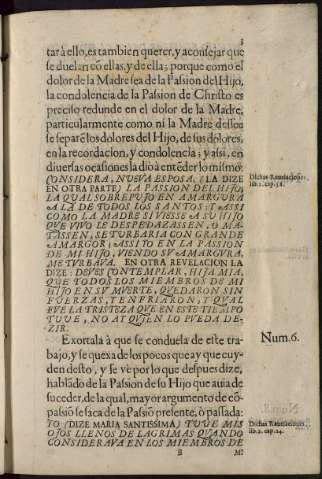 3
tar à ello, es tambien querer, y aconsejar que
se duelan cō ellas, y de ella; porque como el
dolor de la Madre sea de la Pasion del Hijo,
la condolencia de la Pasion de Christo es
preciso redunde en el dolor de la Madre,
particularmente como ni la Madre desee
se separē los dolores del Hijo, de sus dolores,
en la recordacion, y condolencia; y assi, en
diuersas ocasiones la diò à entēder lo mismo:
CONSIDERA, NUEVA ESPOSA: (LA DIZE
EN OTRA PARTE) LA PASSION DEL HIJO,
LA QUAL SOBREPUJO EN AMARGURA
A LA DE TODOS LOS SANTOS: Y ASSI
COMO LA MADRE SI VIESSE A SU HIJO
QUE VIVO LE DESPEDAZASSEN, O MA-
TASSEN, SE TURBARIA CON GRANDE
AMARGOR; ASSI YO EN LA PASSION
DE MI HIJO, VIENDO SU AMARGURA,
ME TURBAVA. EN OTRA REVELACION LA
DIZE: DEVES CONTEMPLAR, HIJA MIA,
QUE TODOS LOS MIEMBROS DE MI
HIJO EN SU MUERTE, QUEDARON SIN
FUERZAS, Y ENFRIARON; Y QUAL
FUE LA TRISTEZA QUE EN ESTE TIEMPO
TUUE, NO AY QUIEN LO PUEDA DE-
ZIR.
Exortala à que se conduela de este tra-
bajo, y se quexa de los pocos que ay que cuy-
den desto, y se vè por lo que despues dize,
hablādo de la Pasion de su Hijo que auia de
suceder, de la qual, mayor argumento de cō-
pasiō se saca de la Pasiō presente, ò passada:
YO (DIZE MARIA SANTISSIMA) TUUE MIS
OJOS LLENOS DE LAGRIMAS QUANDO
CONSIDERAVA EN LOS MIEMBROS DE
B
MI
Dichas Reuelaciones,
Num. 6.
Dichas Reuelaciones,
lib. 2. cap. 24.